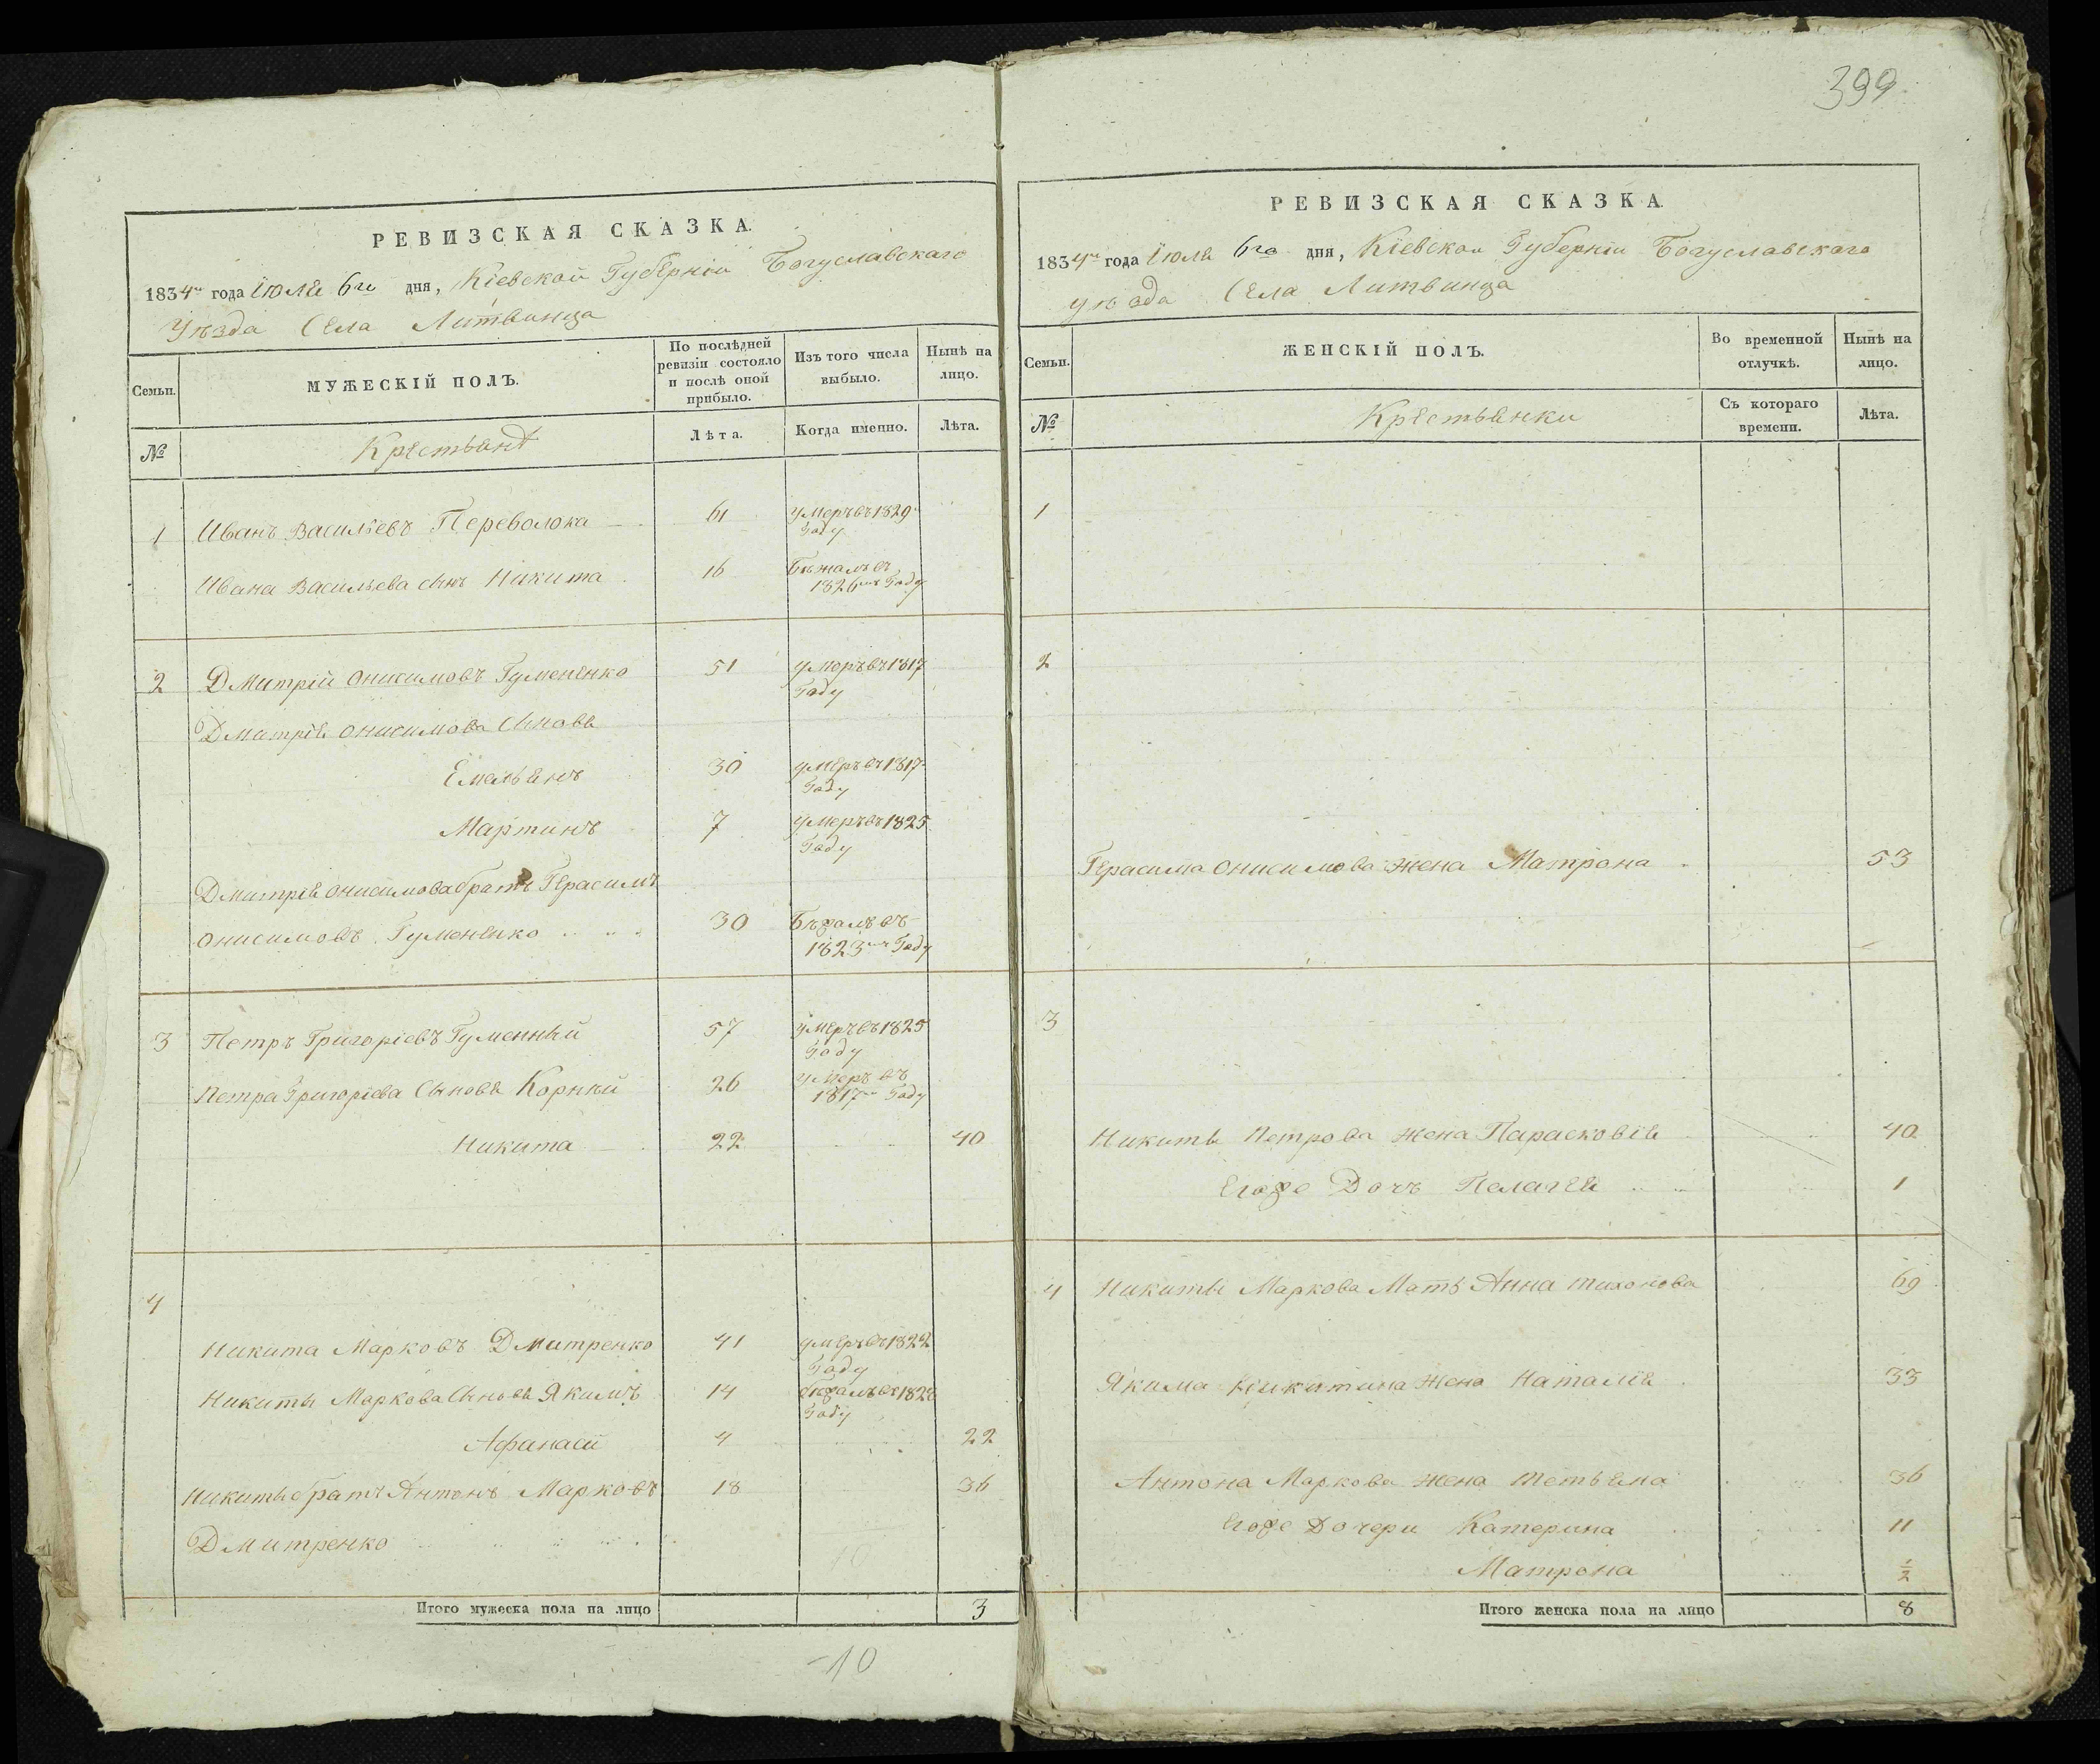 399
РЕВИЗСКАЯ СКАЗКА.
1834го года Іюля 6го дня, Кіевской Губерніи Богуславского
Уѣзда Села Литвинца
Семьи.
МУЖЕСКІЙ ПОЛЪ.
По послѣдней ревизіи состояло и послѣ оной прибыло.
Изъ того числа выбыло.
Нынѣ на лицо.
№
Крестьянѣ
Лѣта.
Когда именно.
Лѣта.
1 Иванъ Васильевъ Переволока 61 умеръ въ 1829
Году
Ивана Васильева сынъ Никита 16 Бѣжалъ въ
1826мъ Году
2 Дмитрій Онисимовъ Гуменѣнко 51 умеръ въ 1817
Году
Дмитрія Онисимова Сыновя
Емельянъ 30 умеръ въ 1817
Году
Мартинъ 7 умеръ въ 1825
Году
Дмитрія Онисимова братъ Герасимъ
Онисимовъ Гуменѣнко 30 Бѣжалъ въ
1823мъ Году
3 Петръ Григоріевъ Гуменный 57 умеръ въ 1825
Году
Петра Григоріева Сыновя Корнѣй 26 умеръ въ
1817 Году
Никита 22 40
4
Никита Марковъ Дмитренко 41 умеръ въ 1822
Году
Никиты Маркова Сыновя Якимъ 14 бѣжалъ въ 1828
Году
Афанасій 4 22
Никиты братъ Антонъ Марковъ 18 36
Дмитренко
10
Итого мужеска пола на лицо 3
-10
РЕВИЗСКАЯ СКАЗКА.
1834го года Іюля 6го дня, Кіевской Губерніи Богуславского
уѣзда Села Литвинца
Семьи.
ЖЕНСКІЙ ПОЛЪ.
Во временной отлучкѣ.
Нынѣ на лицо.
№
Крестьянки
Съ котораго времени.
Лѣта.
1
2
Герасима Онисимова жена Матрона 53
3
Никиты Петрова жена Парасковія 40
Егоже Дочъ Пелагея 1
4 Никиты Маркова Мать Анна Тихонова 69
Якима Никитина жена Наталія 33
Антона Маркова жена Тетьяна 36
Егоже Дочери Катерина 11
Матрона ½
Итого женска пола на лицо 8